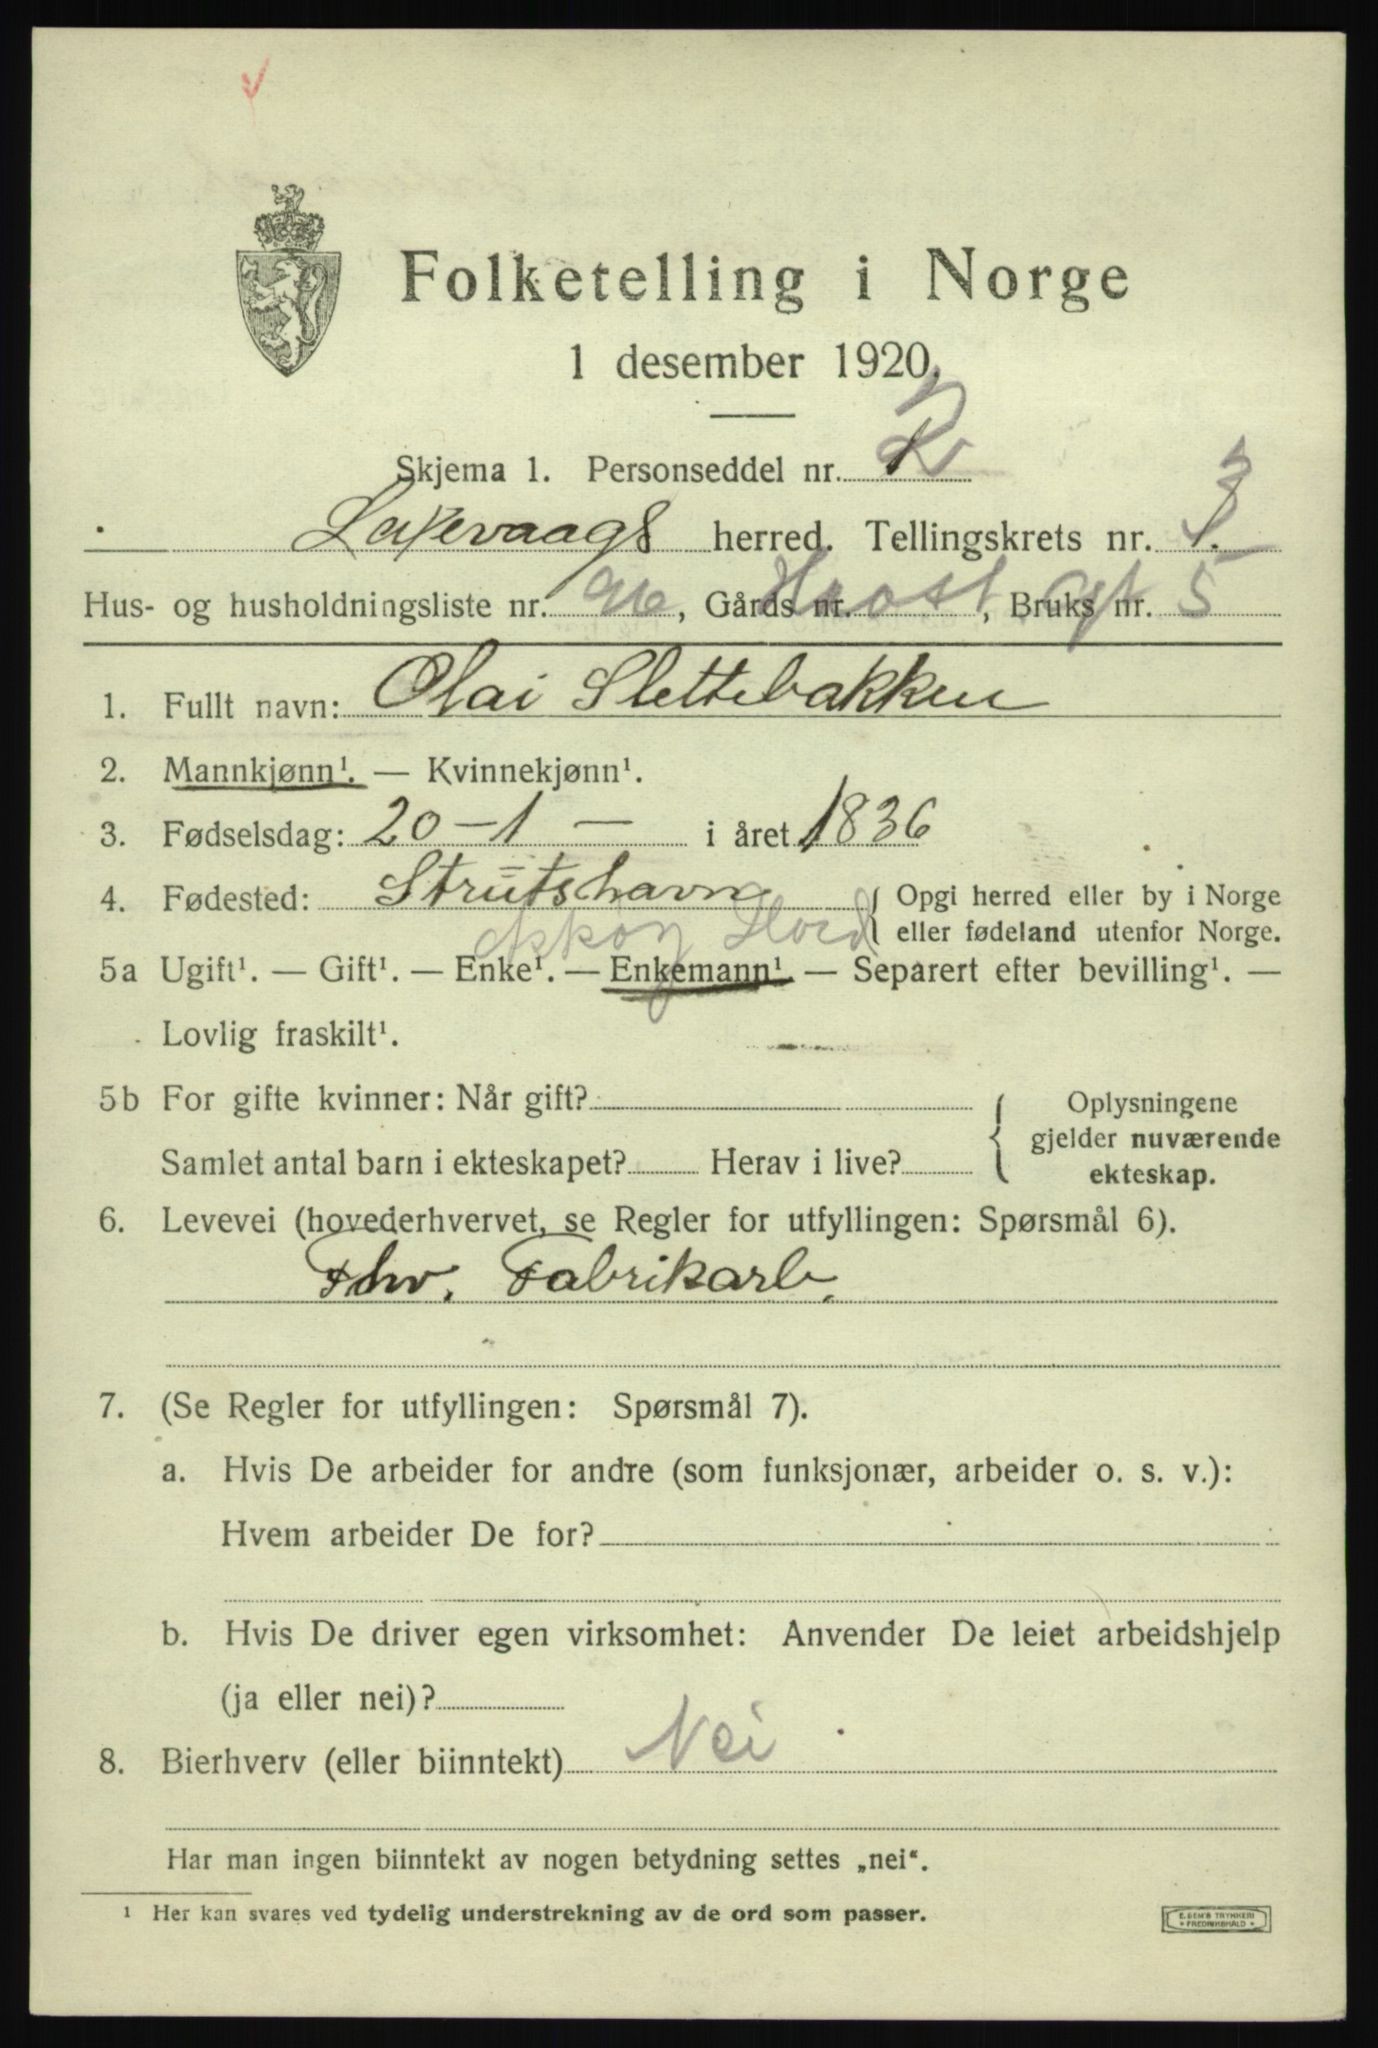 Folketelling i Norge
1 desember 1920.
Skjema 1. Personseddel nr. 2
Laxevaags herred. Tellingskrets nr. 3
Hus- og husholdningsliste nr. 96, Gårds nr. , Bruks nr. 5
1. Fullt navn: Olai Slettebakken
2. Mannkjønn¹. — Kvinnekjønn¹.
3. Fødselsdag: 20-1- i året 1836
4. Fødested: Strutshavn { Opgi herred eller by i Norge
Askøy Hord eller fødeland utenfor Norge.
5a Ugift¹. — Gift¹. — Enke¹. — Enkemann¹. — Separert efter bevilling¹. —
Lovlig fraskilt¹.
5b For gifte kvinner: Når gift? { Oplysningene
gjelder nuværende
Samlet antal barn i ekteskapet? Herav i live?
ekteskap.
6. Levevei (hovederhvervet, se Regler for utfyllingen: Spørsmål 6).
Fhv. Fabrikarb.
7. (Se Regler for utfyllingen: Spørsmål 7).
a. Hvis De arbeider for andre (som funksjonær, arbeider o. s. v.):
Hvem arbeider De for?
b. Hvis De driver egen virksomhet: Anvender De leiet arbeidshjelp
(ja eller nei)?
8. Bierhverv (eller biinntekt) Nei
Har man ingen biinntekt av nogen betydning settes „nei“.
¹ Her kan svares ved tydelig understrekning av de ord som passer.
E. SEM'S TRYKKERI
FREDRIKSHALD